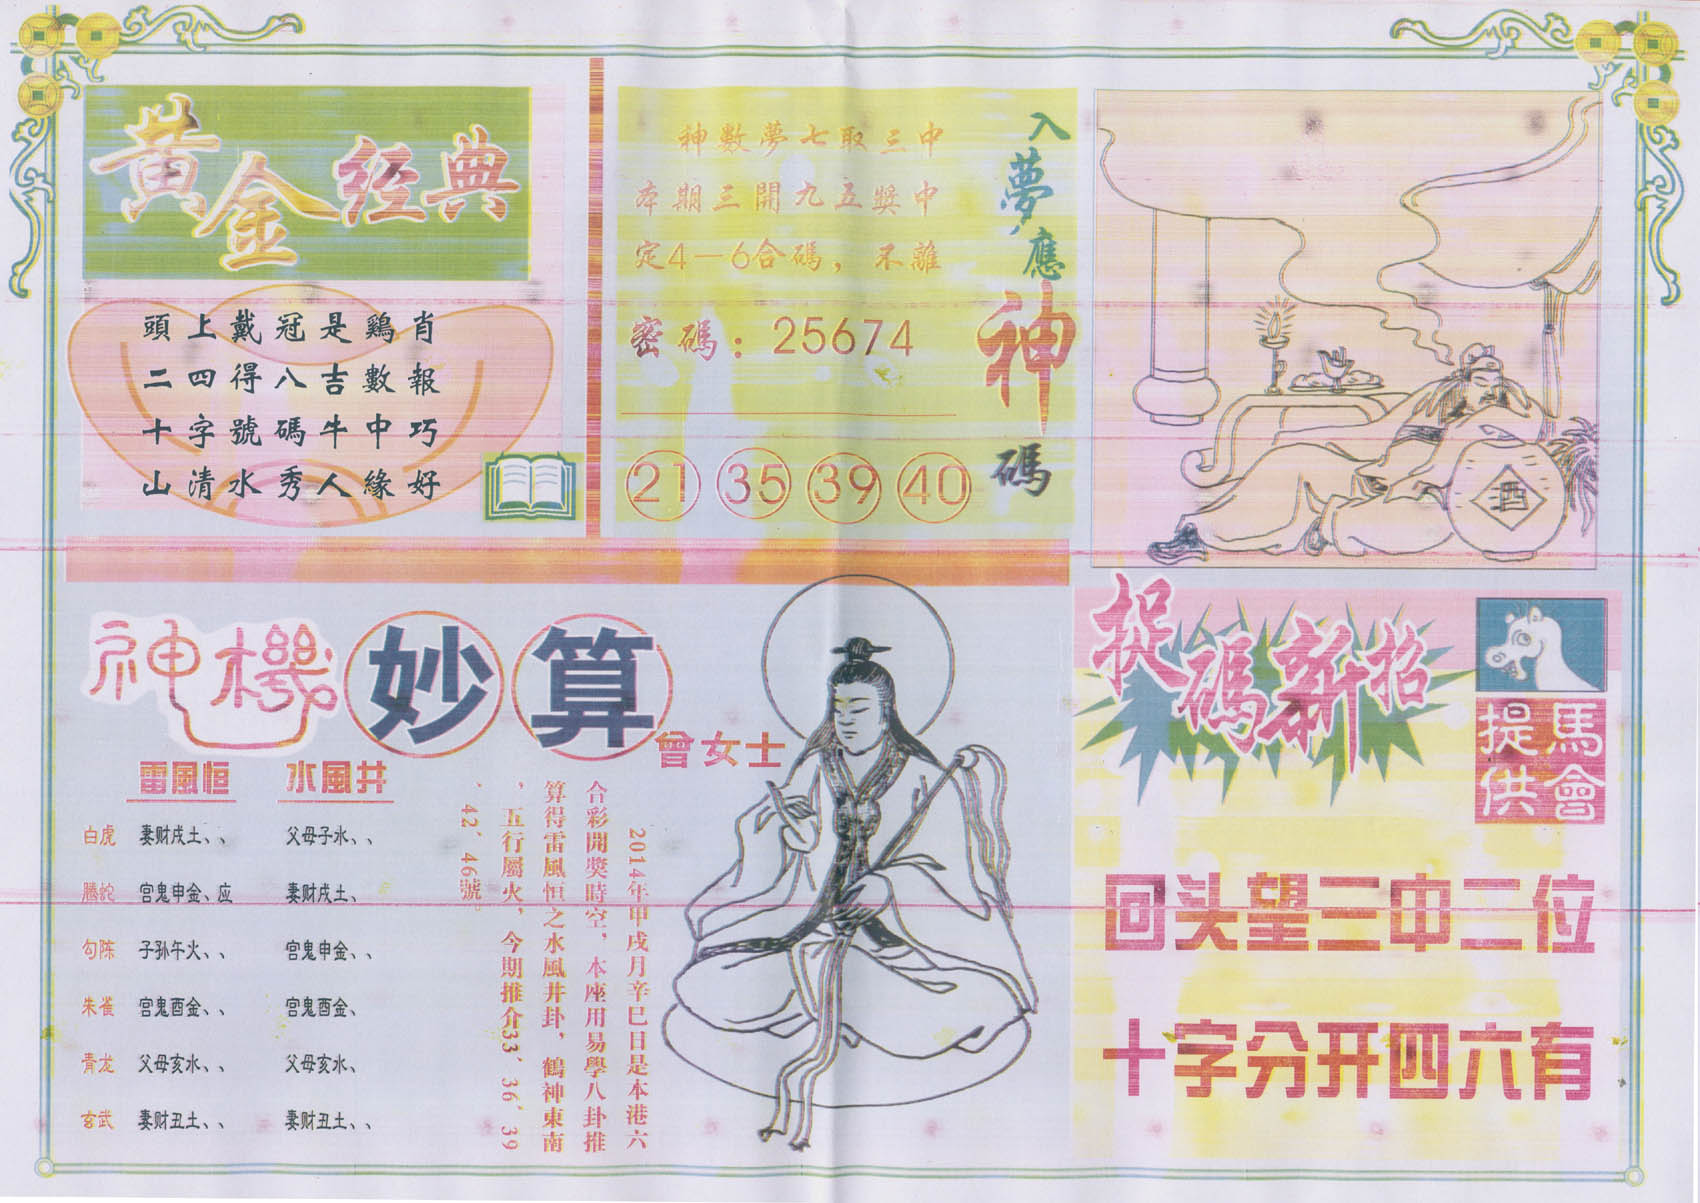 黄金经典
頭上戴冠是鷄肖
二四得八吉數報
十字號碼牛中巧
山清水秀人緣好
神數夢七取三中
本期三開九五獎中
定4－6合碼，不離
密碼：25674
21 35 39 40
入夢應神碼
酒
神機妙算
曾女士
雷風恒 水風井
白虎 妻财戌土、、 父母子水、、
腾蛇 官鬼申金、应 妻财戌土、
勾陈 子孙午火、、 官鬼申金、、
朱雀 官鬼酉金、、 官鬼酉金、
青龙 父母亥水、、 父母亥水、
玄武 妻财丑土、、 妻财丑土、、
2014年甲戌月辛巳日是本港六
合彩開獎時空，本座用易學八卦推
算得雷風恒之水風井卦，鶴神東南
，五行屬火，今期推介33、36、39
、42、46號。
捉碼新招
馬會
提供
回头望三中二位
十字分开四六有